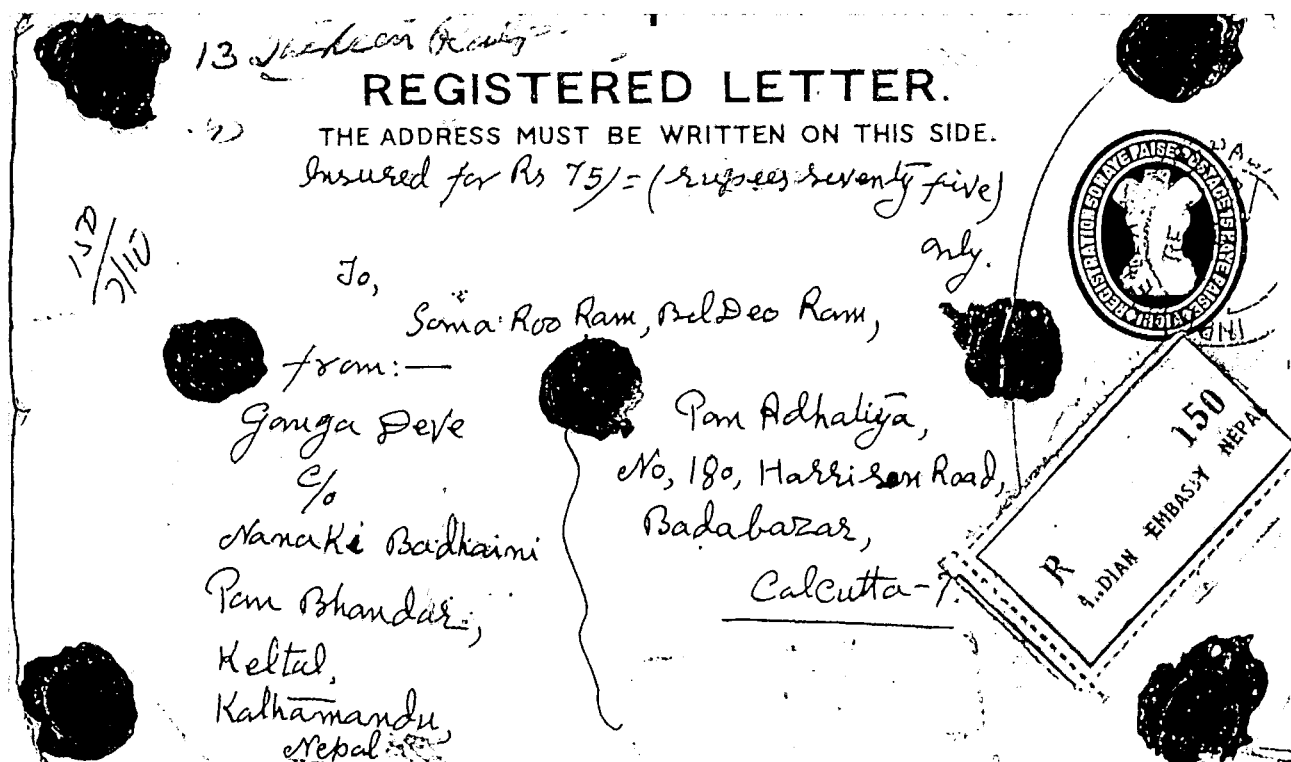 13
REGISTERED LETTER.
THE ADDRESS MUST BE WRITTEN ON THIS SIDE.
Insured for Rs 75/= (rupees seventy five)
only.
To,
Soma Roo Ram, BelDeo Ram,
Pan Adhaliya,
No, 180, Harrison Road,
Badabazar,
Calcutta-7.
from:—
Ganga Deve
C/o
Nanaki Badhaini
Pan Bhandar,
Keltal,
Kalhamandu,
Nepal
REGISTRATION 50 NAYE PAISE • POSTAGE 15 NAYE PAISE
R 150
INDIAN EMBASSY NEPAL